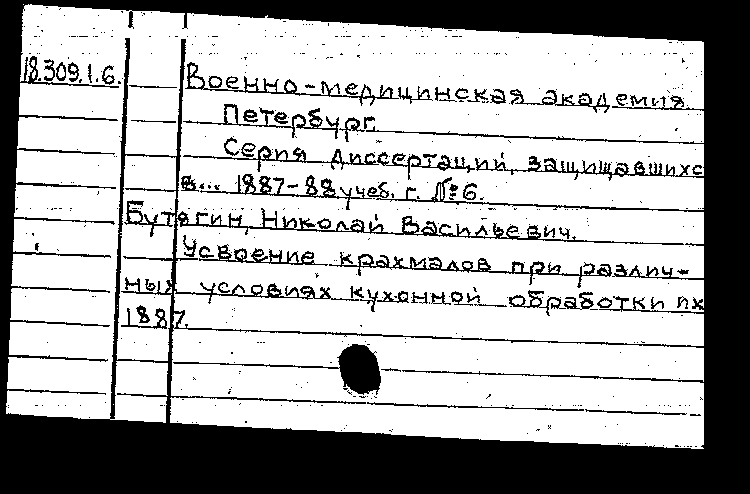 18.309.1.6. Военно-медицинская академия.
Петербург.
Серия диссертаций, защищавшихс
в... 1887-88 учеб. г. № 6.
Бутягин, Николай Васильевич.
Усвоение крахмалов при различ-
ных условиях кухонной обработки их
1887.